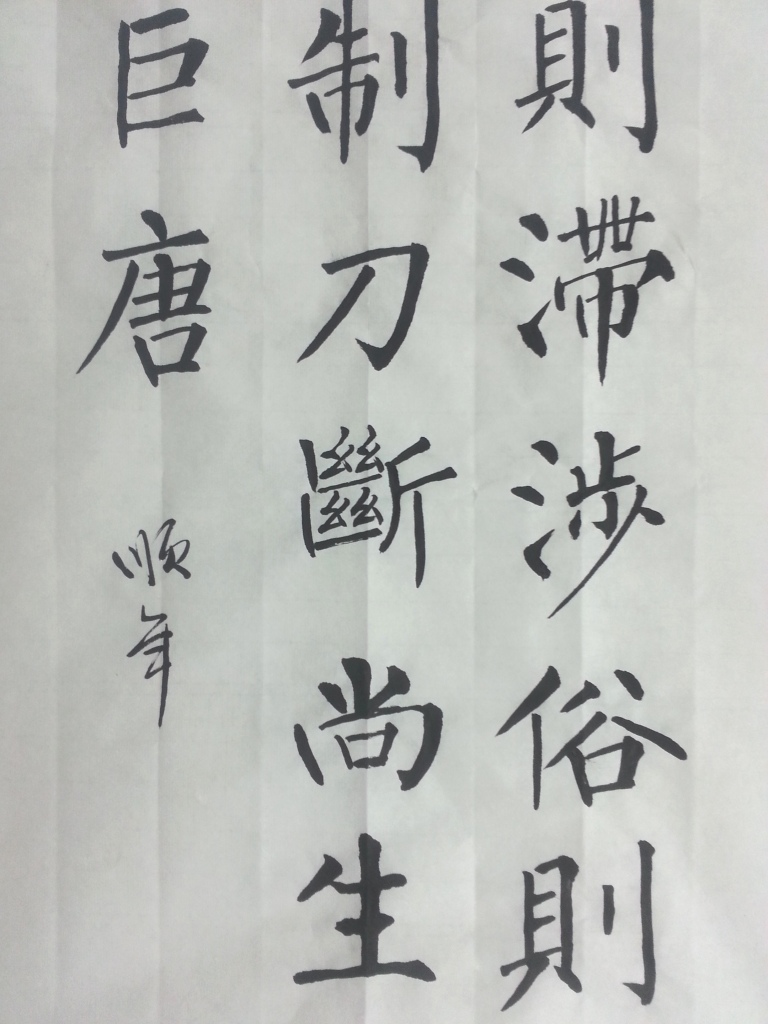 則滯涉俗則
制刀斷尚生
巨唐
顺年